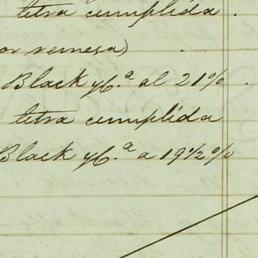 letra cumplida.
or remesa)
Black y Cª al 21%.
letra cumplida
Black y Cª a 19½%